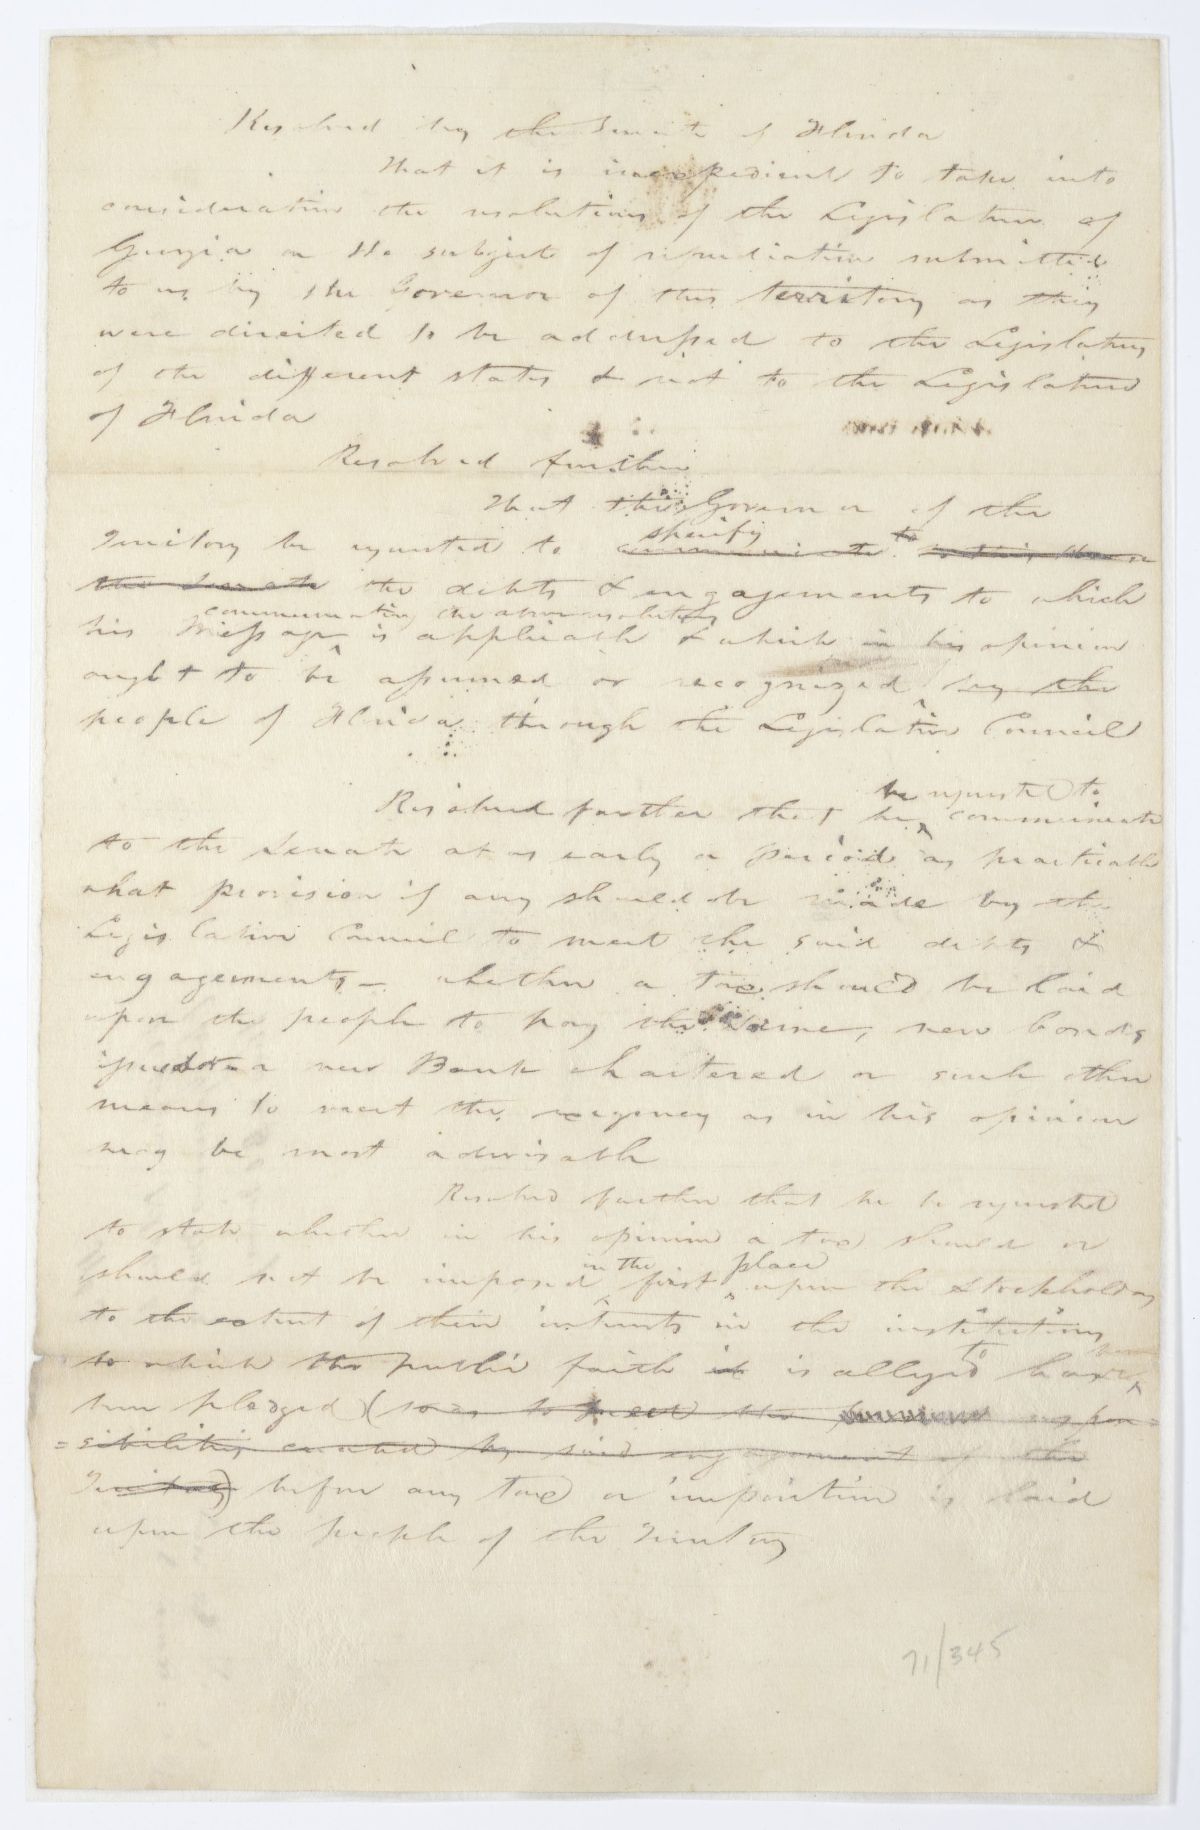 Resolved by the Senate of Florida
That it is inexpedient to take into
consideration the resolutions of the Legislature of
Georgia on the subject of repudiation submitted
to us by the Governor of this territory as they
were directed to be addressed to the Legislatures
of the different states & not to the Legislature
of Florida
Resolved further
That the Governor of the
specify to
Territory be requested to communicate to this House
the Senate the debts & engagements to which
communicating the above resolutions
his Message is applicable & which in his opinion
ought to be assumed or recognized by the
people of Florida through the Legislative Council
be requested to
Resolved further that he communicate
to the Senate at as early a period as practicable
what provision if any should be made by the
Legislative Council to meet the said debts &
engagements - whether a tax should be laid
upon the people to pay the same, new bonds
issued or a new Bank chartered or such other
means to meet the exigency as in his opinion
may be most advisable
Resolved further that he be requested
to state whether in his opinion a tax should or
in the place
should not be imposed first upon the Stockholders
to the extent of their interests in the institutions
to
to which the public faith is alleged have
been pledged (so as to meet the respon=
=sibilities created by said engagement of the
Territory) before any tax or imposition is laid
upon the people of the Territory
71/345